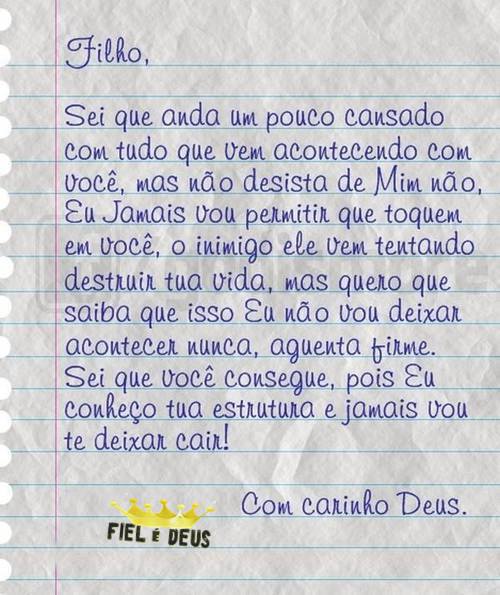 Filho,
Sei que anda um pouco cansado
com tudo que vem acontecendo com
você, mas não desista de Mim não,
Eu Jamais vou permitir que toquem
em você, o inimigo ele vem tentando
destruir tua vida, mas quero que
saiba que isso Eu não vou deixar
acontecer nunca, aguenta firme.
Sei que você consegue, pois Eu
conheço tua estrutura e jamais vou
te deixar cair!
Com carinho Deus.
FIEL É DEUS